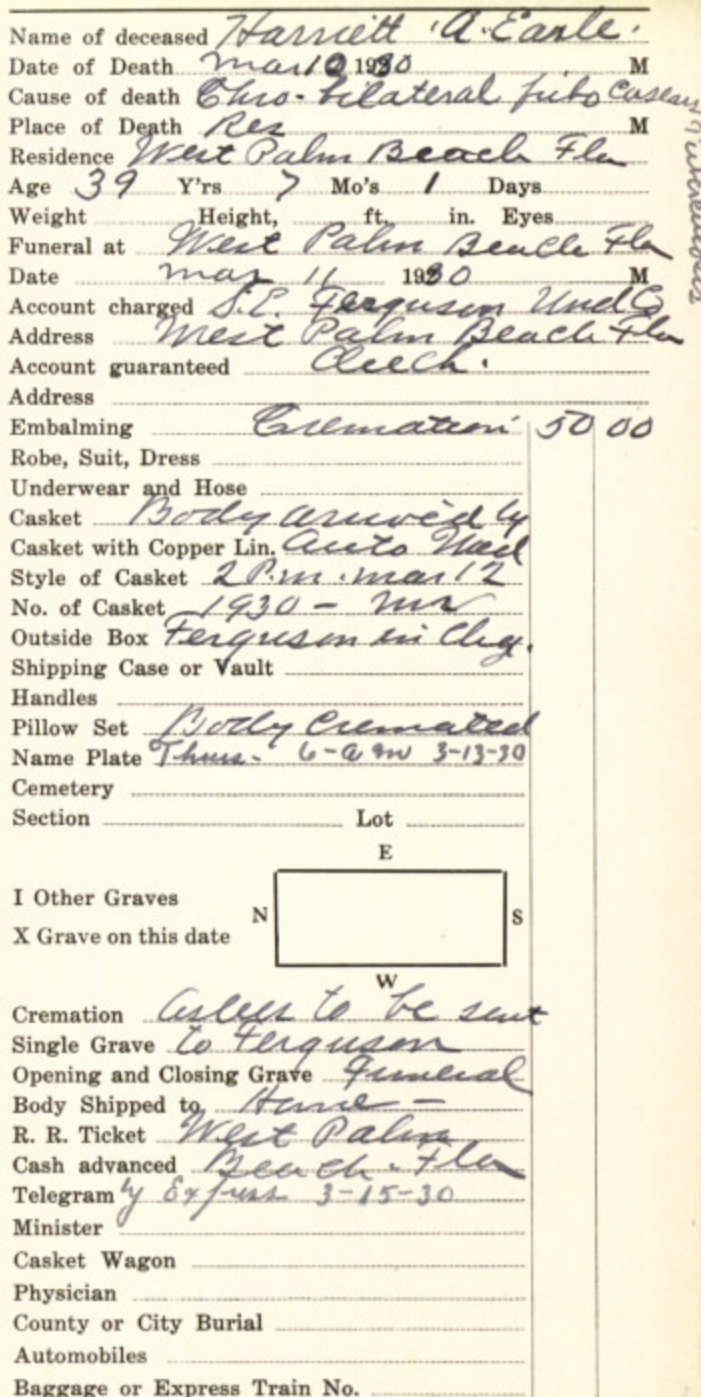 Name of deceased Harriett A. Earle.
Date of Death Mar 10 1930 M
Cause of death Chro-bilateral fibo Caseous
Tuberculosis
Place of Death Res M
Residence West Palm Beach Fla
Age 39 Y'rs 7 Mo's 1 Days
Weight Height, ft. in. Eyes
Funeral at West Palm Beach Fla
Date Mar 11 1930 M
Account charged S.E. Ferguson Und Co
Address West Palm Beach Fla
Account guaranteed
Address
Embalming Cremation 50 00
Robe, Suit, Dress
Underwear and Hose
Casket Body arrived by
Casket with Copper Lin. Auto
Style of Casket 2 P.m. Mar 12
No. of Casket 1930 - Mr
Outside Box Ferguson in Chg.
Shipping Case or Vault
Handles
Pillow Set Body Cremated
Name Plate Thurs. 6-am 3-13-30
Cemetery
Section Lot
E
I Other Graves
N S
X Grave on this date
W
Cremation Ashes to be sent
Single Grave to Ferguson
Opening and Closing Grave Funeral
Body Shipped to Home -
R. R. Ticket West Palm
Cash advanced Beach. Fla
Telegram by Express 3-15-30
Minister
Casket Wagon
Physician
County or City Burial
Automobiles
Baggage or Express Train No.